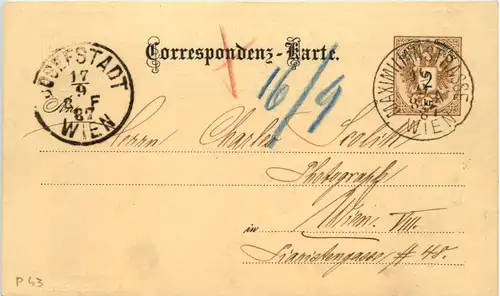 Correspondenz-Karte.
JOSEFSTADT
17
9
8. F
87
WIEN
16/9
MAXIMILIANSTRASSE
87
WIEN
An
Herrn Charles Scolik
Photograph
in Wien. VIII.
Piaristengasse # 48.
P 43